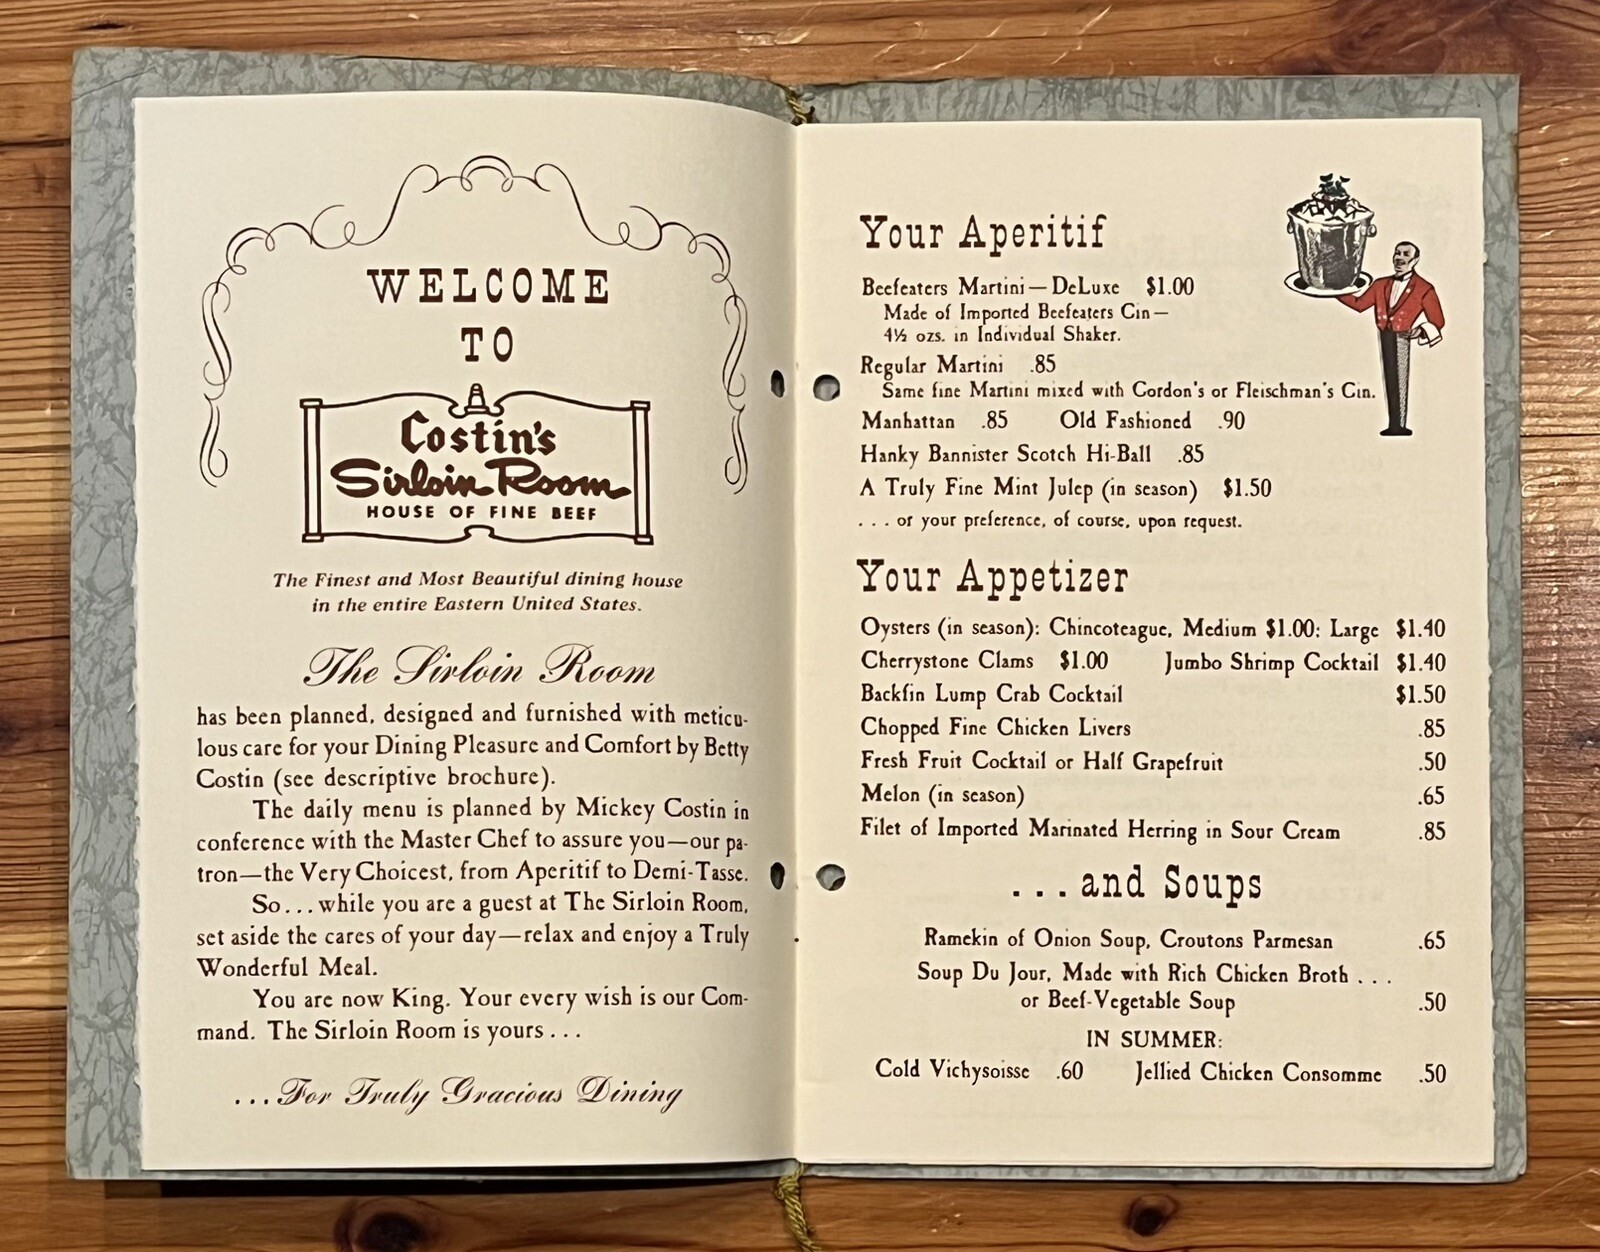 WELCOME
TO
Costin's
Sirloin Room
HOUSE OF FINE BEEF
The Finest and Most Beautiful dining house
in the entire Eastern United States.
The Sirloin Room
has been planned, designed and furnished with meticu-
lous care for your Dining Pleasure and Comfort by Betty
Costin (see descriptive brochure).
The daily menu is planned by Mickey Costin in
conference with the Master Chef to assure you—our pa-
tron—the Very Choicest, from Aperitif to Demi-Tasse.
So...while you are a guest at The Sirloin Room,
set aside the cares of your day—relax and enjoy a Truly
Wonderful Meal.
You are now King. Your every wish is our Com-
mand. The Sirloin Room is yours...
...For Truly Gracious Dining
Your Aperitif
Beefeaters Martini—DeLuxe $1.00
Made of Imported Beefeaters Gin—
4½ ozs. in Individual Shaker.
Regular Martini .85
Same fine Martini mixed with Gordon's or Fleischman's Gin.
Manhattan .85 Old Fashioned .90
Hanky Bannister Scotch Hi-Ball .85
A Truly Fine Mint Julep (in season) $1.50
...or your preference, of course, upon request.
Your Appetizer
Oysters (in season): Chincoteague, Medium $1.00: Large $1.40
Cherrystone Clams $1.00 Jumbo Shrimp Cocktail $1.40
Backfin Lump Crab Cocktail $1.50
Chopped Fine Chicken Livers .85
Fresh Fruit Cocktail or Half Grapefruit .50
Melon (in season) .65
Filet of Imported Marinated Herring in Sour Cream .85
...and Soups
Ramekin of Onion Soup, Croutons Parmesan .65
Soup Du Jour, Made with Rich Chicken Broth...
or Beef-Vegetable Soup .50
IN SUMMER:
Cold Vichysoisse .60 Jellied Chicken Consomme .50